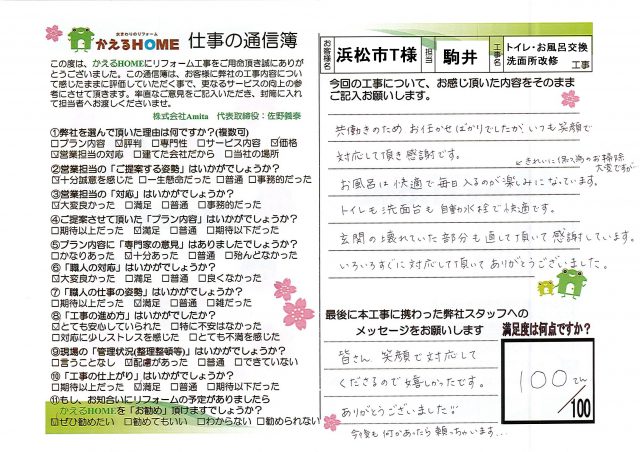 水まわりのリフォーム
かえるHOME 仕事の通信簿
この度は、かえるHOMEにリフォーム工事をご用命頂き誠にありが
とうございました。この通信簿は、お客様に弊社の工事内容につい
て感じたままに評価していただく事で、更なるサービスの向上の参
考にさせて頂きます。率直なご意見をご記入いただき、封筒に入れ
て担当者へお渡しくださいませ。
株式会社Amita 代表取締役：佐野義泰
①弊社を選んで頂いた理由は何ですか?(複数可)
□プラン内容 ☑評判 □専門性 □サービス内容 ☑価格
☑営業担当の対応 □建てた会社だから □当社の場所
②営業担当の「ご提案する姿勢」はいかがでしょうか?
☑十分誠意を感じた □一生懸命だった □普通 □事務的だった
③営業担当の「対応」はいかがでしょうか?
☑大変良かった □満足 □普通 □事務的だった
④ご提案させて頂いた「プラン内容」はいかがでしょうか?
□期待以上だった ☑満足 □普通 □期待以下だった
⑤プラン内容に「専門家の意見」はありましたでしょうか?
□かなりあった ☑十分あった □普通 □殆んどなかった
⑥「職人の対応」はいかがでしょうか?
☑大変良かった □満足 □普通 □良くなかった
⑦「職人の仕事の姿勢」はいかがでしょうか?
□期待以上だった ☑満足 □普通 □雑だった
⑧「工事の進め方」はいかがでしたか?
☑とても安心していられた □特に不安はなかった
□対応に少しストレスを感じた □とても不満を感じた
⑨現場の「管理状況(整理整頓等)」はいかがでしょうか?
□言うことなし ☑配慮があった □普通 □できていない
⑩「工事の仕上がり」はいかがでしょうか?
□期待以上だった ☑満足 □普通 □期待以下だった
⑪もし、お知合いにリフォームの予定がありましたら
かえるHOMEを「お勧め」頂けますでしょうか?
☑ぜひ勧めたい □勧めてもいい □わからない □勧められない
お客様名 浜松市T様 担当 駒井 工事名 トイレ・お風呂交換
洗面所改修 工事
今回の工事について、お感じ頂いた内容をそのまま
ご記入お願いします。
共働きのため お任せばかりでしたが、いつも笑顔で
対応して頂き感謝です。
きれいに保つ為のお掃除
大変ですが
お風呂は快適で毎日入るのが楽しみになっています。
トイレも洗面台も自動水栓で快適です。
玄関の壊れていた部分も直して頂いて感謝しています。
いろいろすぐに対応して頂いてありがとうございました。
最後に本工事に携わった弊社スタッフへの
メッセージをお願いします
皆さん 笑顔で対応して
くださるので嬉しかったです。
ありがとうございました!!
今後も何かあったら頼っちゃいます...
満足度は何点ですか?
100てん
/100